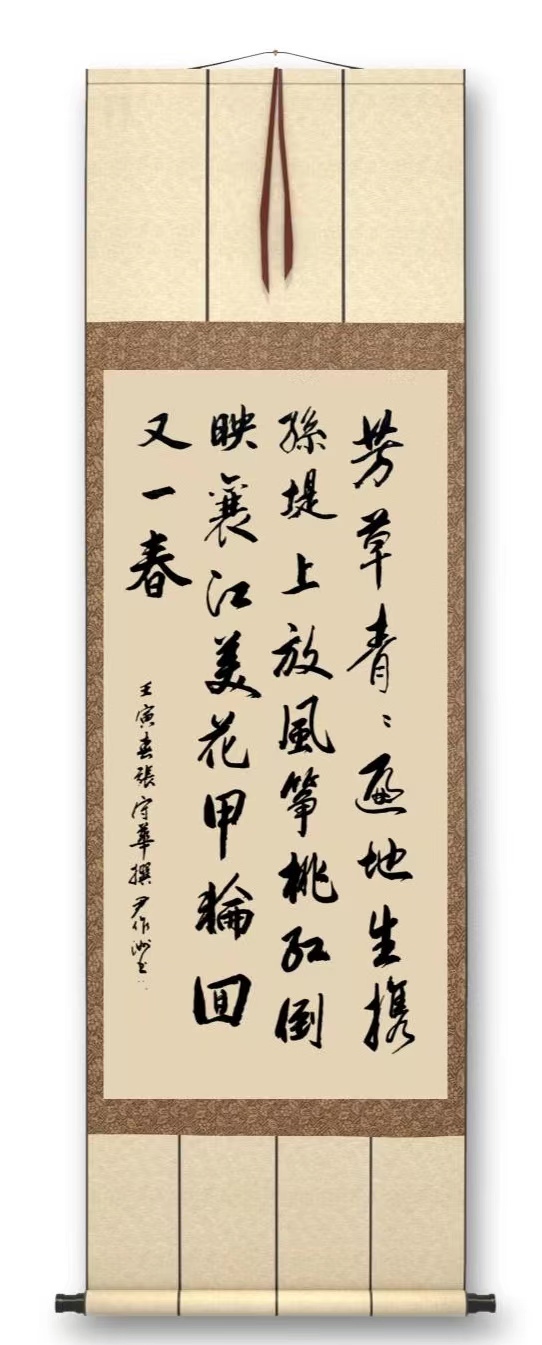 芳草青々遍地生携
孫堤上放風筝桃紅倒
映襄江美花甲輪回
又一春
壬寅春張守華撰尹作洲书